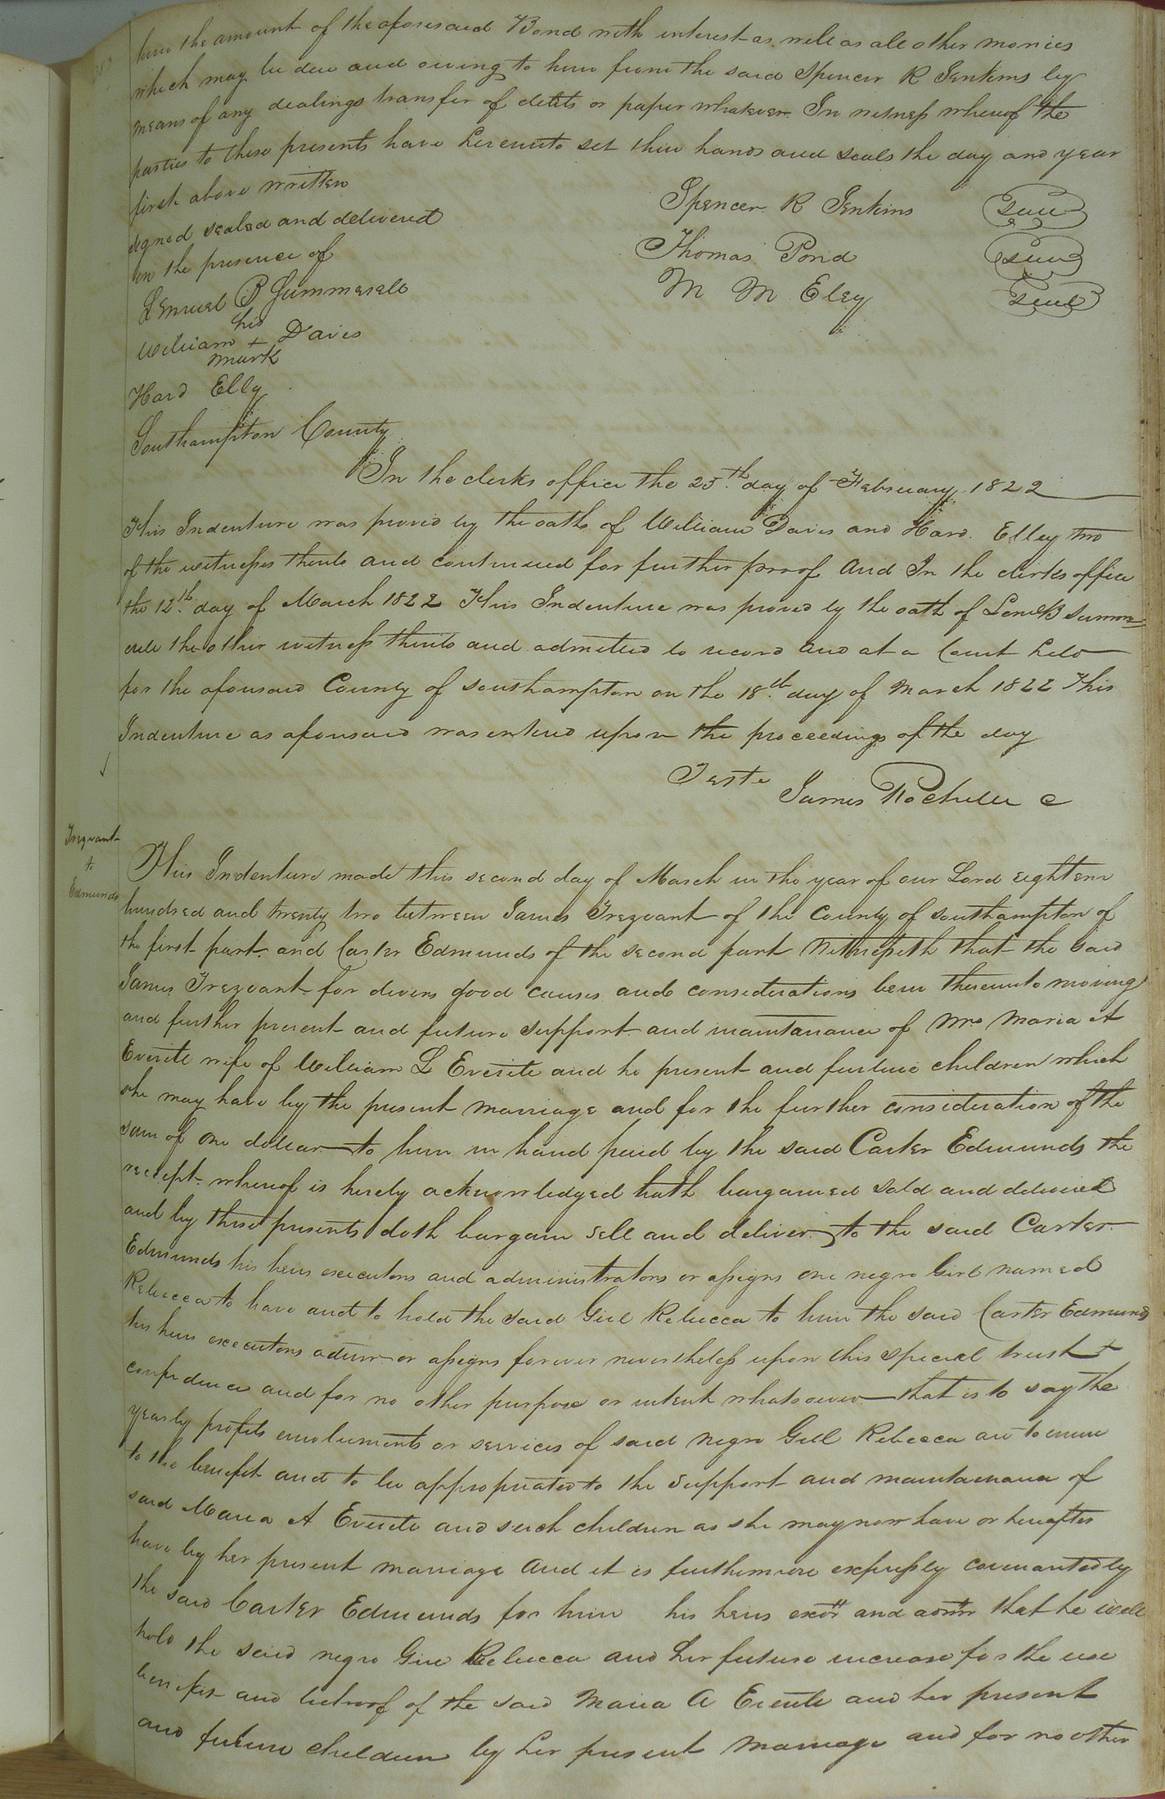 him the amount of the aforesaid Bond with interest as well as all other monies
which may be due and owing to him from the said Spencer R Jenkins by
means of any dealings transfer of debts or paper whatever In witness whereof the
parties to these presents have hereunto set their hands and seals the day and year
first above written
Spencer R Jenkins seal
signed sealed and delivered
Thomas Pond seal
in the presence of
M M Eley seal
Lemuel B Summerell
his
William + Davis
mark
Hard Elly
Southampton County
In the clerks office the 25th day of February 1822
This Indenture was proved by the oaths of William Davis and Hard. Elley two
of the witnesses thereto and continued for further proof And In the clerks office
the 12th day of March 1822 This Indenture was proved by the oath of Leml B Summ=
erell the other witness thereto and admitted to record And at a Court held
for the aforesaid County of Southampton on the 18th day of March 1822 This
Indenture as aforesaid was entered upon the proceedings of the day
Teste James Rochelle C
Trezvant
to
Edmunds
This Indenture made this second day of March in the year of our Lord eighteen
hundred and twenty two between James Trezvant of the County of Southampton of
the first part and Carter Edmunds of the second part Witnesseth that the said
James Trezvant for divers good causes and considerations him thereunto moving
and further present and future support and maintanance of Mrs Maria A
Everitt wife of William L Everitt and he present and further children which
she may have by the present marriage and for the further consideration of the
sum of one dollar to him in hand paid by the said Carter Edmunds the
receipt whereof is hereby acknowledged hath bargained sold and delivered
and by these presents doth bargain sell and deliver to the said Carter
Edmunds his heirs executors and administrators or assigns one negro Girl named
Rebecca to have and to hold the said Girl Rebecca to him the said Carter Edmunds
his heirs executors admr or assigns forever nevertheless upon this special trust &
confidence and for no other purpose or intent whatsoever that is to say the
yearly profits emoluments or services of said negro Girl Rebecca are to enure
to the benefit and to be appropriated to the support and maintanance of
said Maria A Everitt and such children as she may now have or hereafter
have by her present marriage And it is furthermore expressly covenanted by
the said Carter Edmunds for him his heirs exors and admrs that he will
hold the said negro Girl Rebecca and her future increase for the use
benefit and behoof of the said Maria A Everitt and her present
and future children by her present marriage and for no other